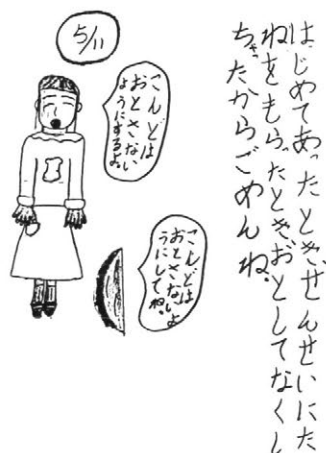 はじめてあったとき、せんせいにた
ねをもらったときおとしてなくし
ちゃったからごめんね。
5/11
こんどは
おとさない
ようにするよ。
こんどは
おとさないよ
うにしてね。